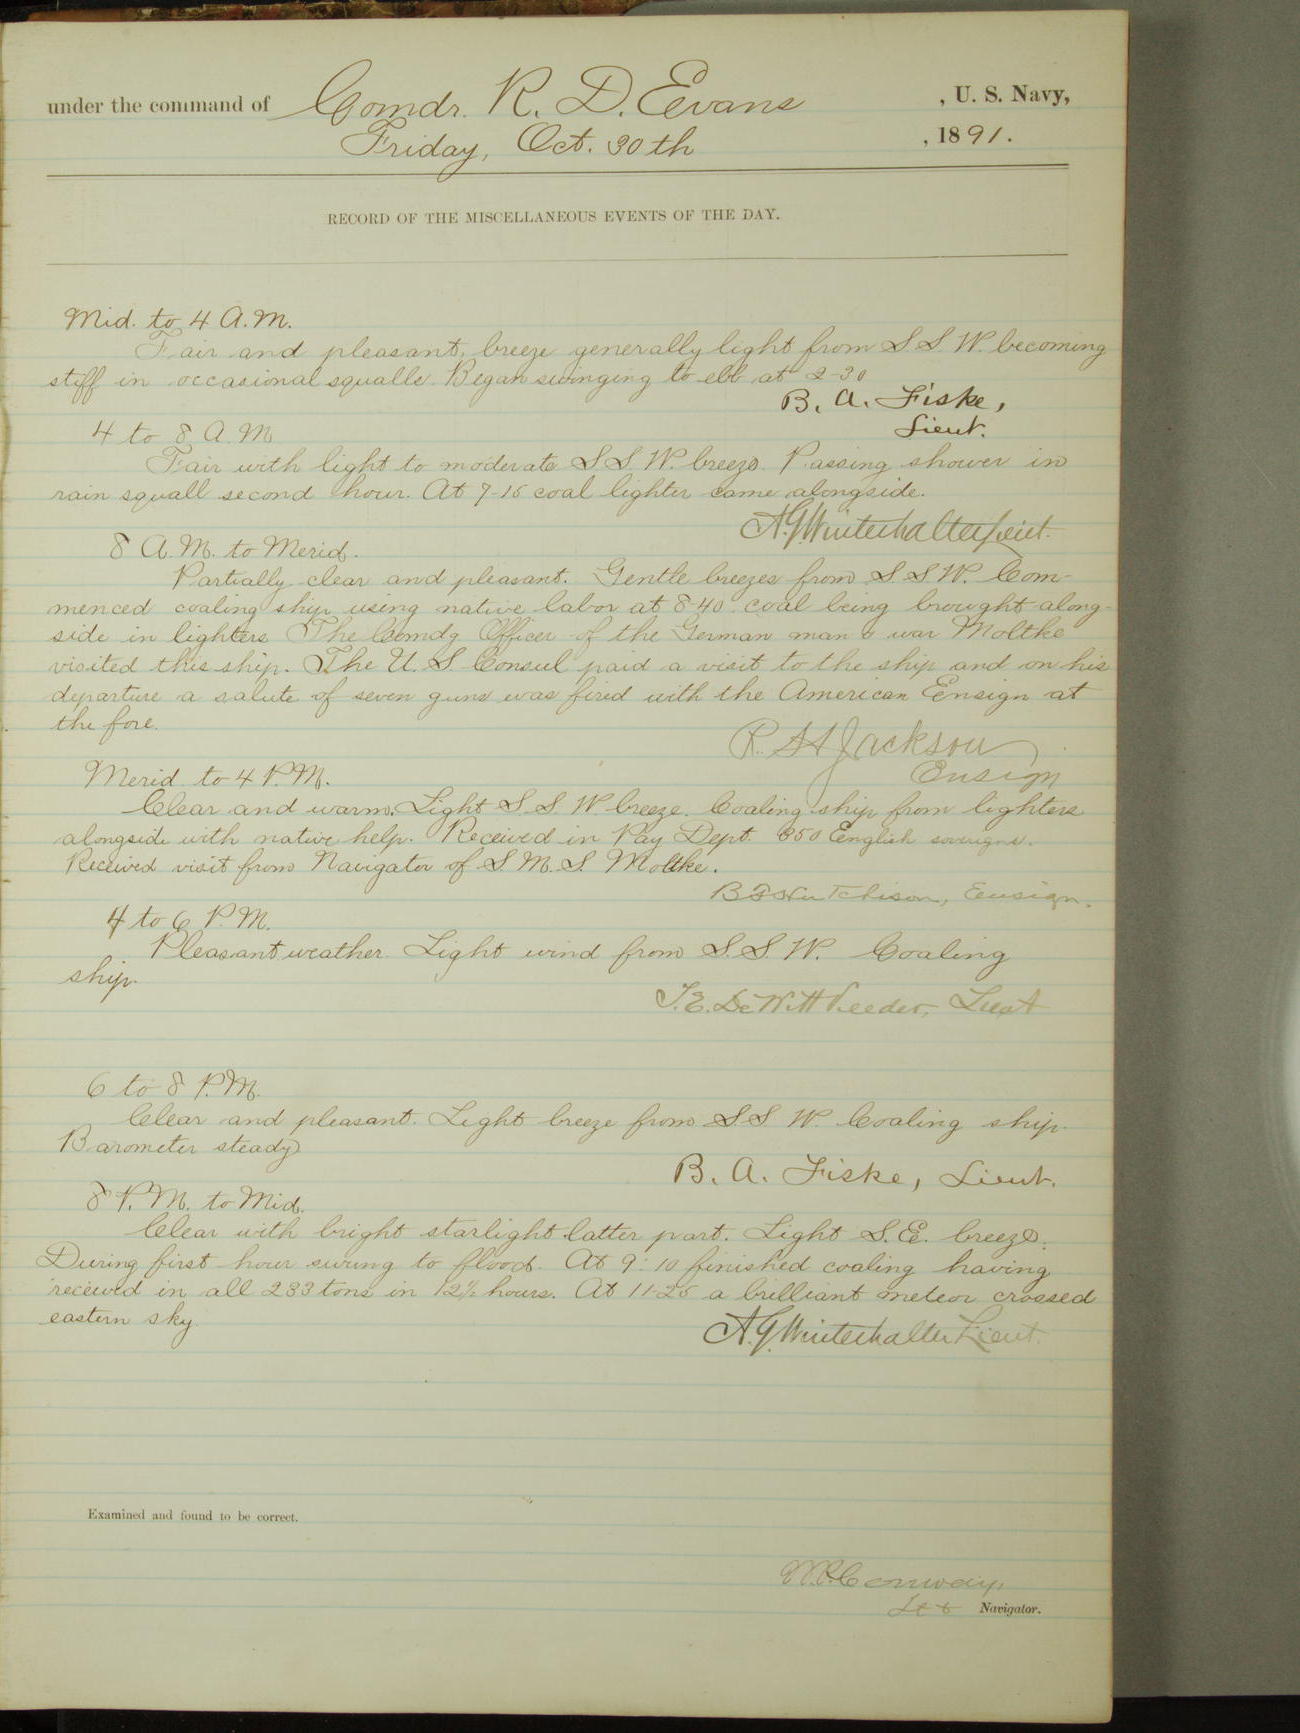 under the command of Comdr. R. D. Evans , U. S. Navy,
Friday, Oct. 30th , 1891.
RECORD OF THE MISCELLANEOUS EVENTS OF THE DAY.
Mid. to 4 A.M.
Fair and pleasant, breeze generally light from S.S.W. becoming
stiff in occasional squalls. Began swinging to ebb at 2-30
B. A. Fiske,
Lieut.
4 to 8 A.M.
Fair with light to moderate S.S.W. breeze. Passing shower in
rain squall second hour. At 7-15 coal lighter came alongside.
A.G. Winterhalter Lieut.
8 A.M. to Merid.
Partially clear and pleasant. Gentle breezes from S.S.W. Com-
menced coaling ship using native labor at 8-40. coal being brought along-
side in lighters. The Comdg Officer of the German man o war Moltke
visited this ship. The U.S. Consul paid a visit to the ship and on his
departure a salute of seven guns was fired with the American Ensign at
the fore.
R. H. Jackson
Ensign
Merid. to 4 P.M.
Clear and warm. Light S.S.W breeze. Coaling ship from lighters
alongside with native help. Received in Pay Dept. 850 English
Received visit from Navigator of S.M.S. Moltke.
B F Hutchison, Ensign.
4 to 6 P.M.
Pleasant weather. Light wind from S.S.W. Coaling
ship.
T.E. DeWitt Veeder, Lieut
6 to 8 P.M.
Clear and pleasant. Light breeze from S.S.W. Coaling ship.
Barometer steady
B. A. Fiske, Lieut.
8 P.M. to Mid.
Clear with bright starlight latter part. Light S.E. breeze.
During first hour swung to flood. At 9:10 finished coaling having
received in all 233 tons in 12½ hours. At 11-25 a brilliant meteor crossed
eastern sky.
A.G. Winterhalter Lieut.
Examined and found to be correct.
Conway,
Lt Navigator.